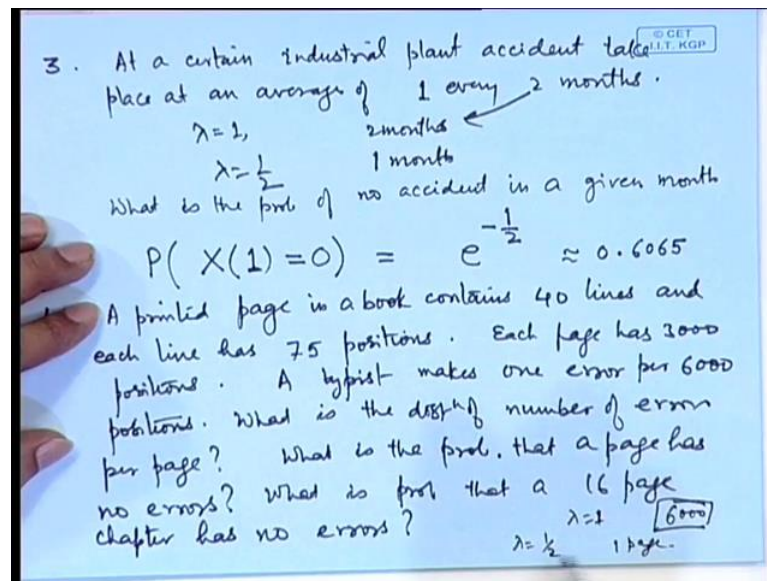 © CET
I.I.T. KGP
3. At a certain industrial plant accident take
place at an average of 1 every 2 months.
λ = 1, 2 months
λ = 1/2 1 month
What is the prob of no accident in a given month
P( X(1) = 0) = e^{-1/2} ≈ 0.6065
A printed page in a book contains 40 lines and
each line has 75 positions. Each page has 3000
positions. A typist makes one error per 6000
positions. What is the distⁿ of number of errors
per page? What is the prob. that a page has
no errors? What is prob that a 16 page
chapter has no errors?
λ = 1 6000
λ = 1/2 1 page.